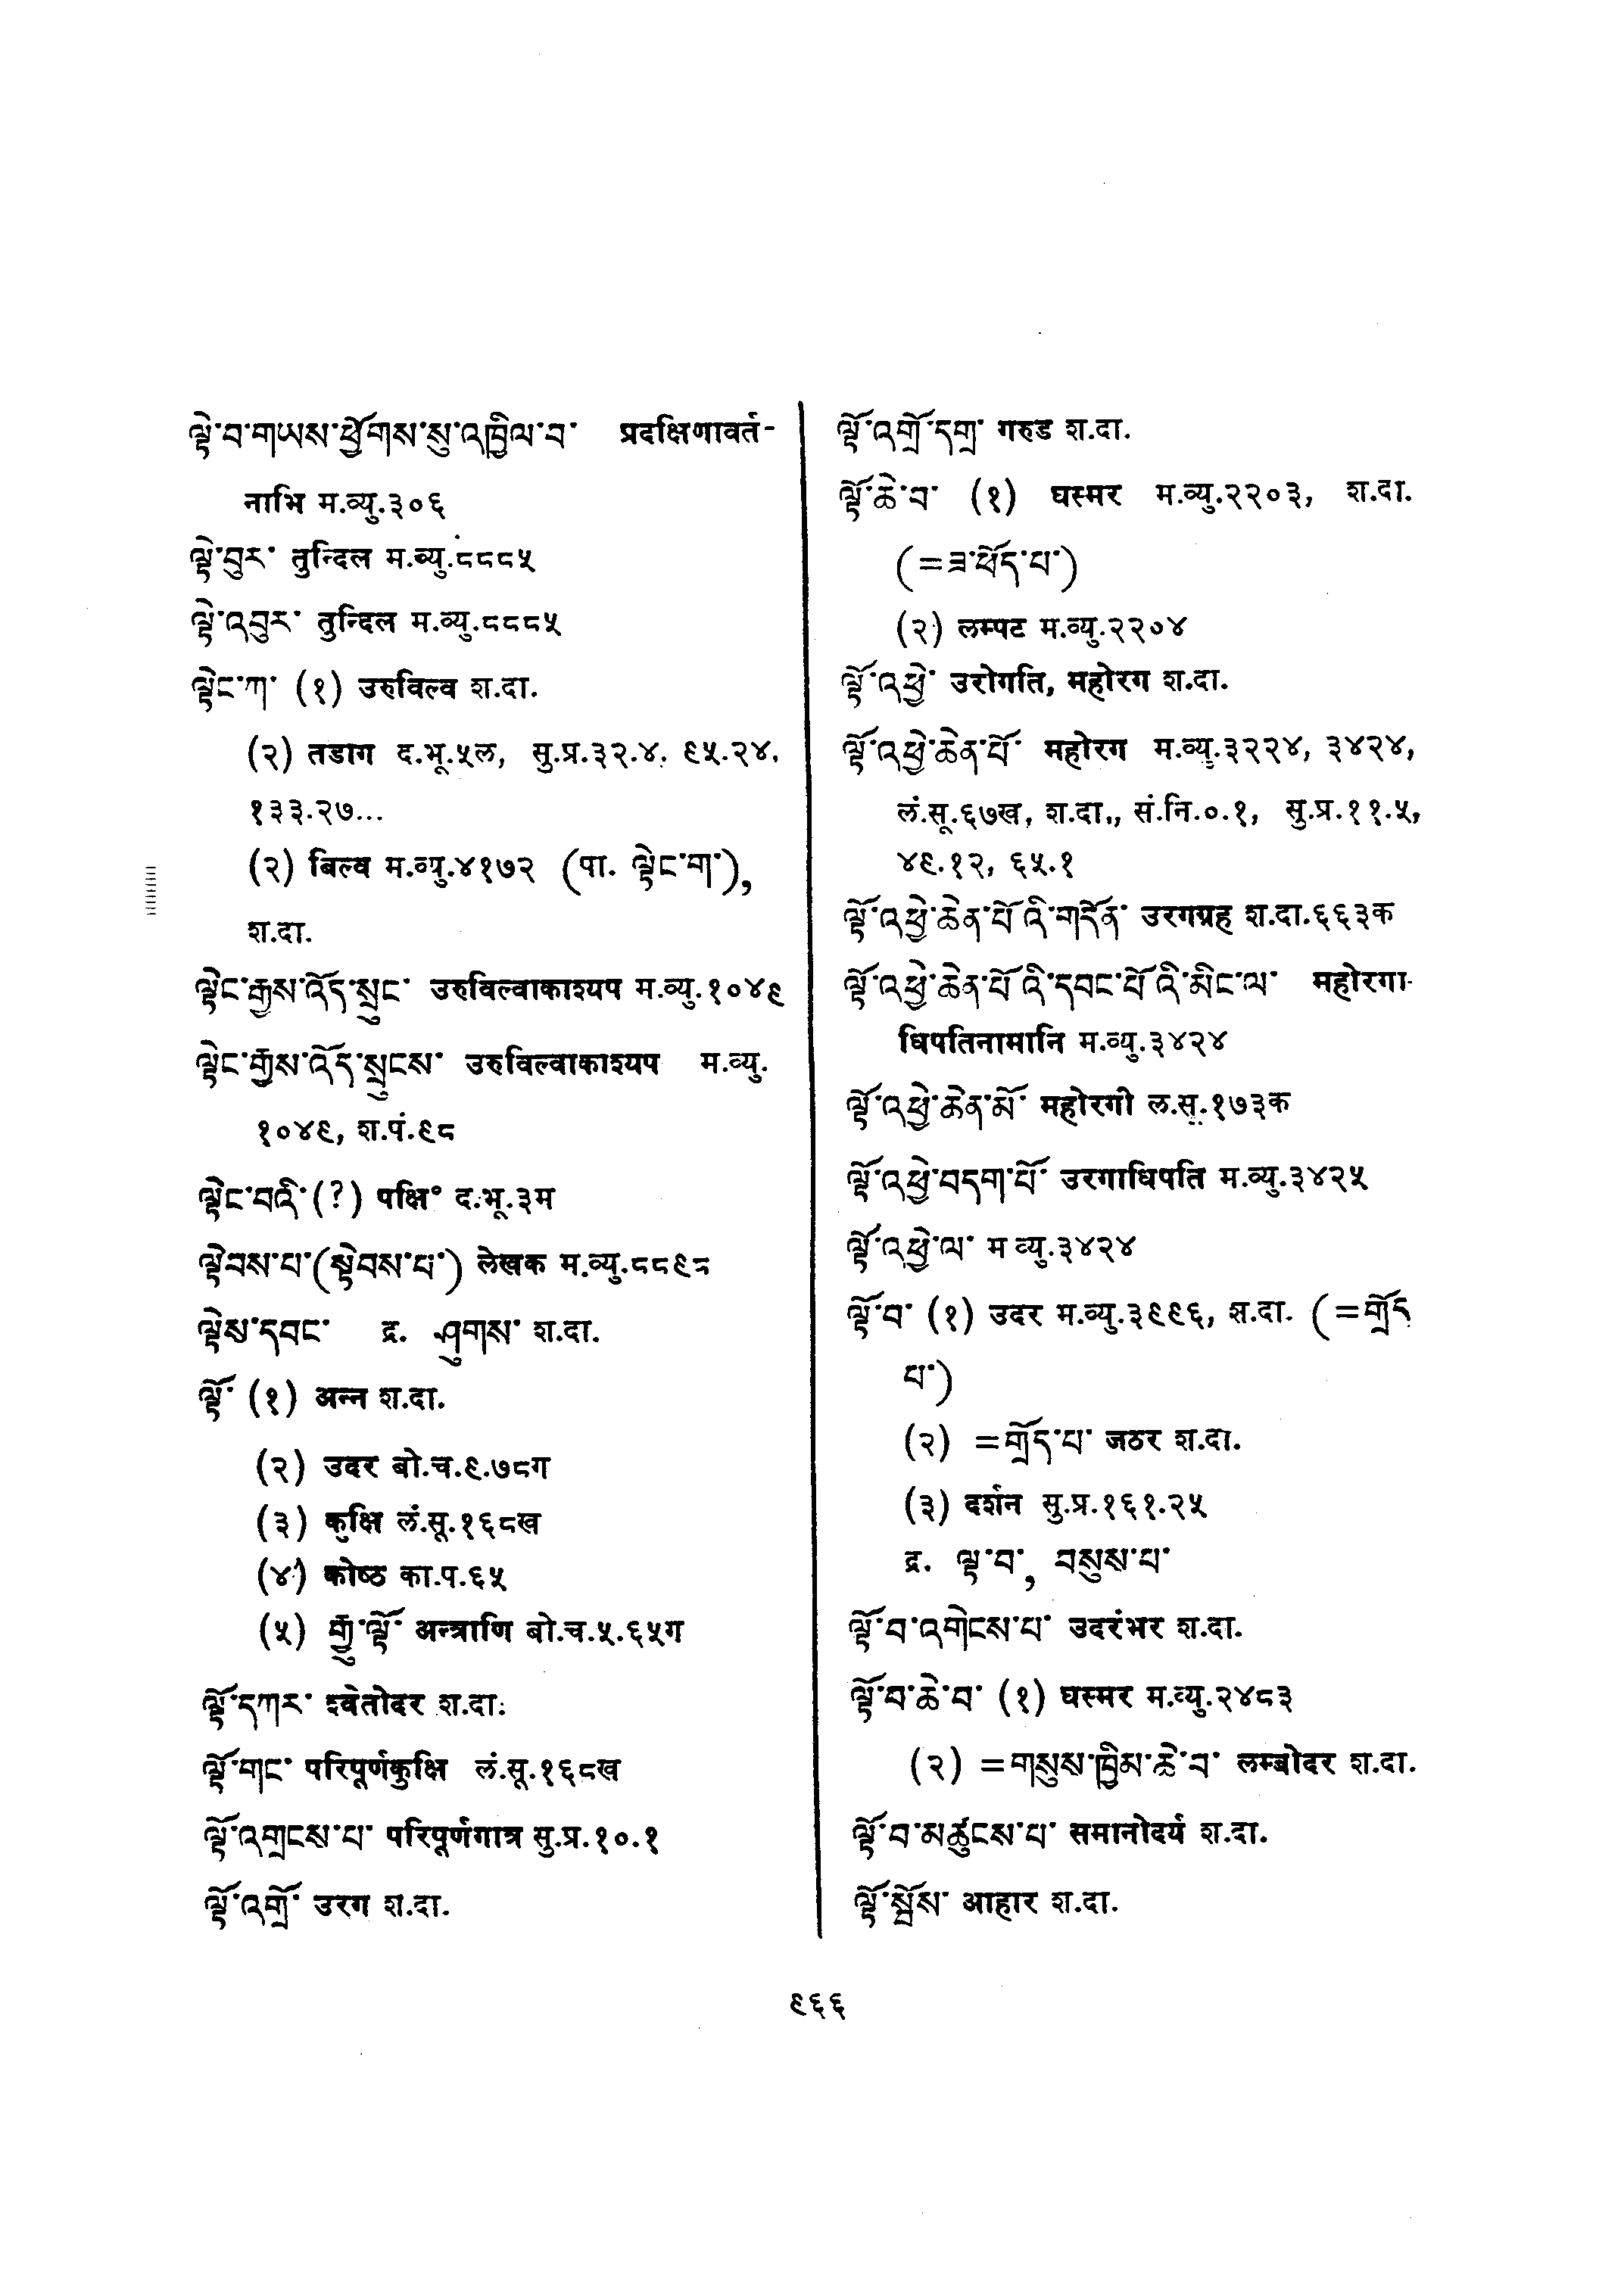 ལྟེ་བ་གཡས་ཕྱོགས་སུ་འཁྱིལ་བ་ प्रदक्षिणावर्त-
नाभि म.व्यु.३०६
ལྟེ་བུར་ तुन्दिल म.व्यु.८८८५
ལྟེ་འབུར་ तुन्दिल म.व्यु.८८८५
ལྟེང་ཀ་ (१) उरुविल्व श.दा.
(२) तडाग द.भू.५ल, सु.प्र.३२.४, ९५.२४,
१३३.२७...
(२) बिल्व म.व्यु.४१७२ (पा. ལྟེང་ག་),
श.दा.
ལྟེང་རྒྱས་འོད་སྲུང་ उरुविल्वाकाश्यप म.व्यु.१०४९
ལྟེང་རྒྱས་འོད་སྲུངས་ उरुविल्वाकाश्यप म.व्यु.
१०४९, श.पं.९८
ལྟེང་བའི་(?) पक्षि° द.भू.३म
ལྟེབས་པ་(སྟེབས་པ་) लेखक म.व्यु.८८९८
ལྟེས་དབང་ द्र. ཤུགས་ श.दा.
ལྟོ་ (१) अन्न श.दा.
(२) उदर बो.च.९.७८ग
(३) कुक्षि लं.सू.१६८ख
(४) कोष्ठ का.प.६५
(५) རྒྱུ་ལྟོ་ अन्त्राणि बो.च.५.६५ग
ལྟོ་དཀར་ श्वेतोदर श.दा.
ལྟོ་གང་ परिपूर्णकुक्षि लं.सू.१६८ख
ལྟོ་འགྲངས་པ་ परिपूर्णगात्र सु.प्र.१०.१
ལྟོ་འགྲོ་ उरग श.दा.
ལྟོ་འགྲོ་དགྲ་ गरुड श.दा.
ལྟོ་ཆེ་བ་ (१) घस्मर म.व्यु.२२०३, श.दा.
(=ཟ་ཕོད་པ་)
(२) लम्पट म.व्यु.२२०४
ལྟོ་འཕྱེ་ उरोगति, महोरग श.दा.
ལྟོ་འཕྱེ་ཆེན་པོ་ महोरग म.व्यु.३२२४, ३४२४,
लं.सू.६७ख, श.दा., सं.नि.०.१, सु.प्र.११.५,
४९.१२, ६५.१
ལྟོ་འཕྱེ་ཆེན་པོའི་གདོན་ उरगग्रह श.दा.६६३क
ལྟོ་འཕྱེ་ཆེན་པོའི་དབང་པོའི་མིང་ལ་ महोरगा-
धिपतिनामानि म.व्यु.३४२४
ལྟོ་འཕྱེ་ཆེན་མོ་ महोरगी ल.सू.१७३क
ལྟོ་འཕྱེ་བདག་པོ་ उरगाधिपति म.व्यु.३४२५
ལྟོ་འཕྱེ་ལ་ म व्यु.३४२४
ལྟོ་བ་ (१) उदर म.व्यु.३९९६, श.दा. (=གྲོད་
པ་)
(२) =གྲོད་པ་ जठर श.दा.
(३) दर्शन सु.प्र.१६१.२५
द्र. ལྟ་བ་, བསུས་པ་
ལྟོ་བ་འགེངས་པ་ उदरंभर श.दा.
ལྟོ་བ་ཆེ་བ་ (१) घस्मर म.व्यु.२४८३
(२) =གསུས་ཁྱིམ་ཆེ་བ་ लम्बोदर श.दा.
ལྟོ་བ་མཚུངས་པ་ समानोदर्य श.दा.
ལྟོ་སྤྲོས་ आहार श.दा.
९६६